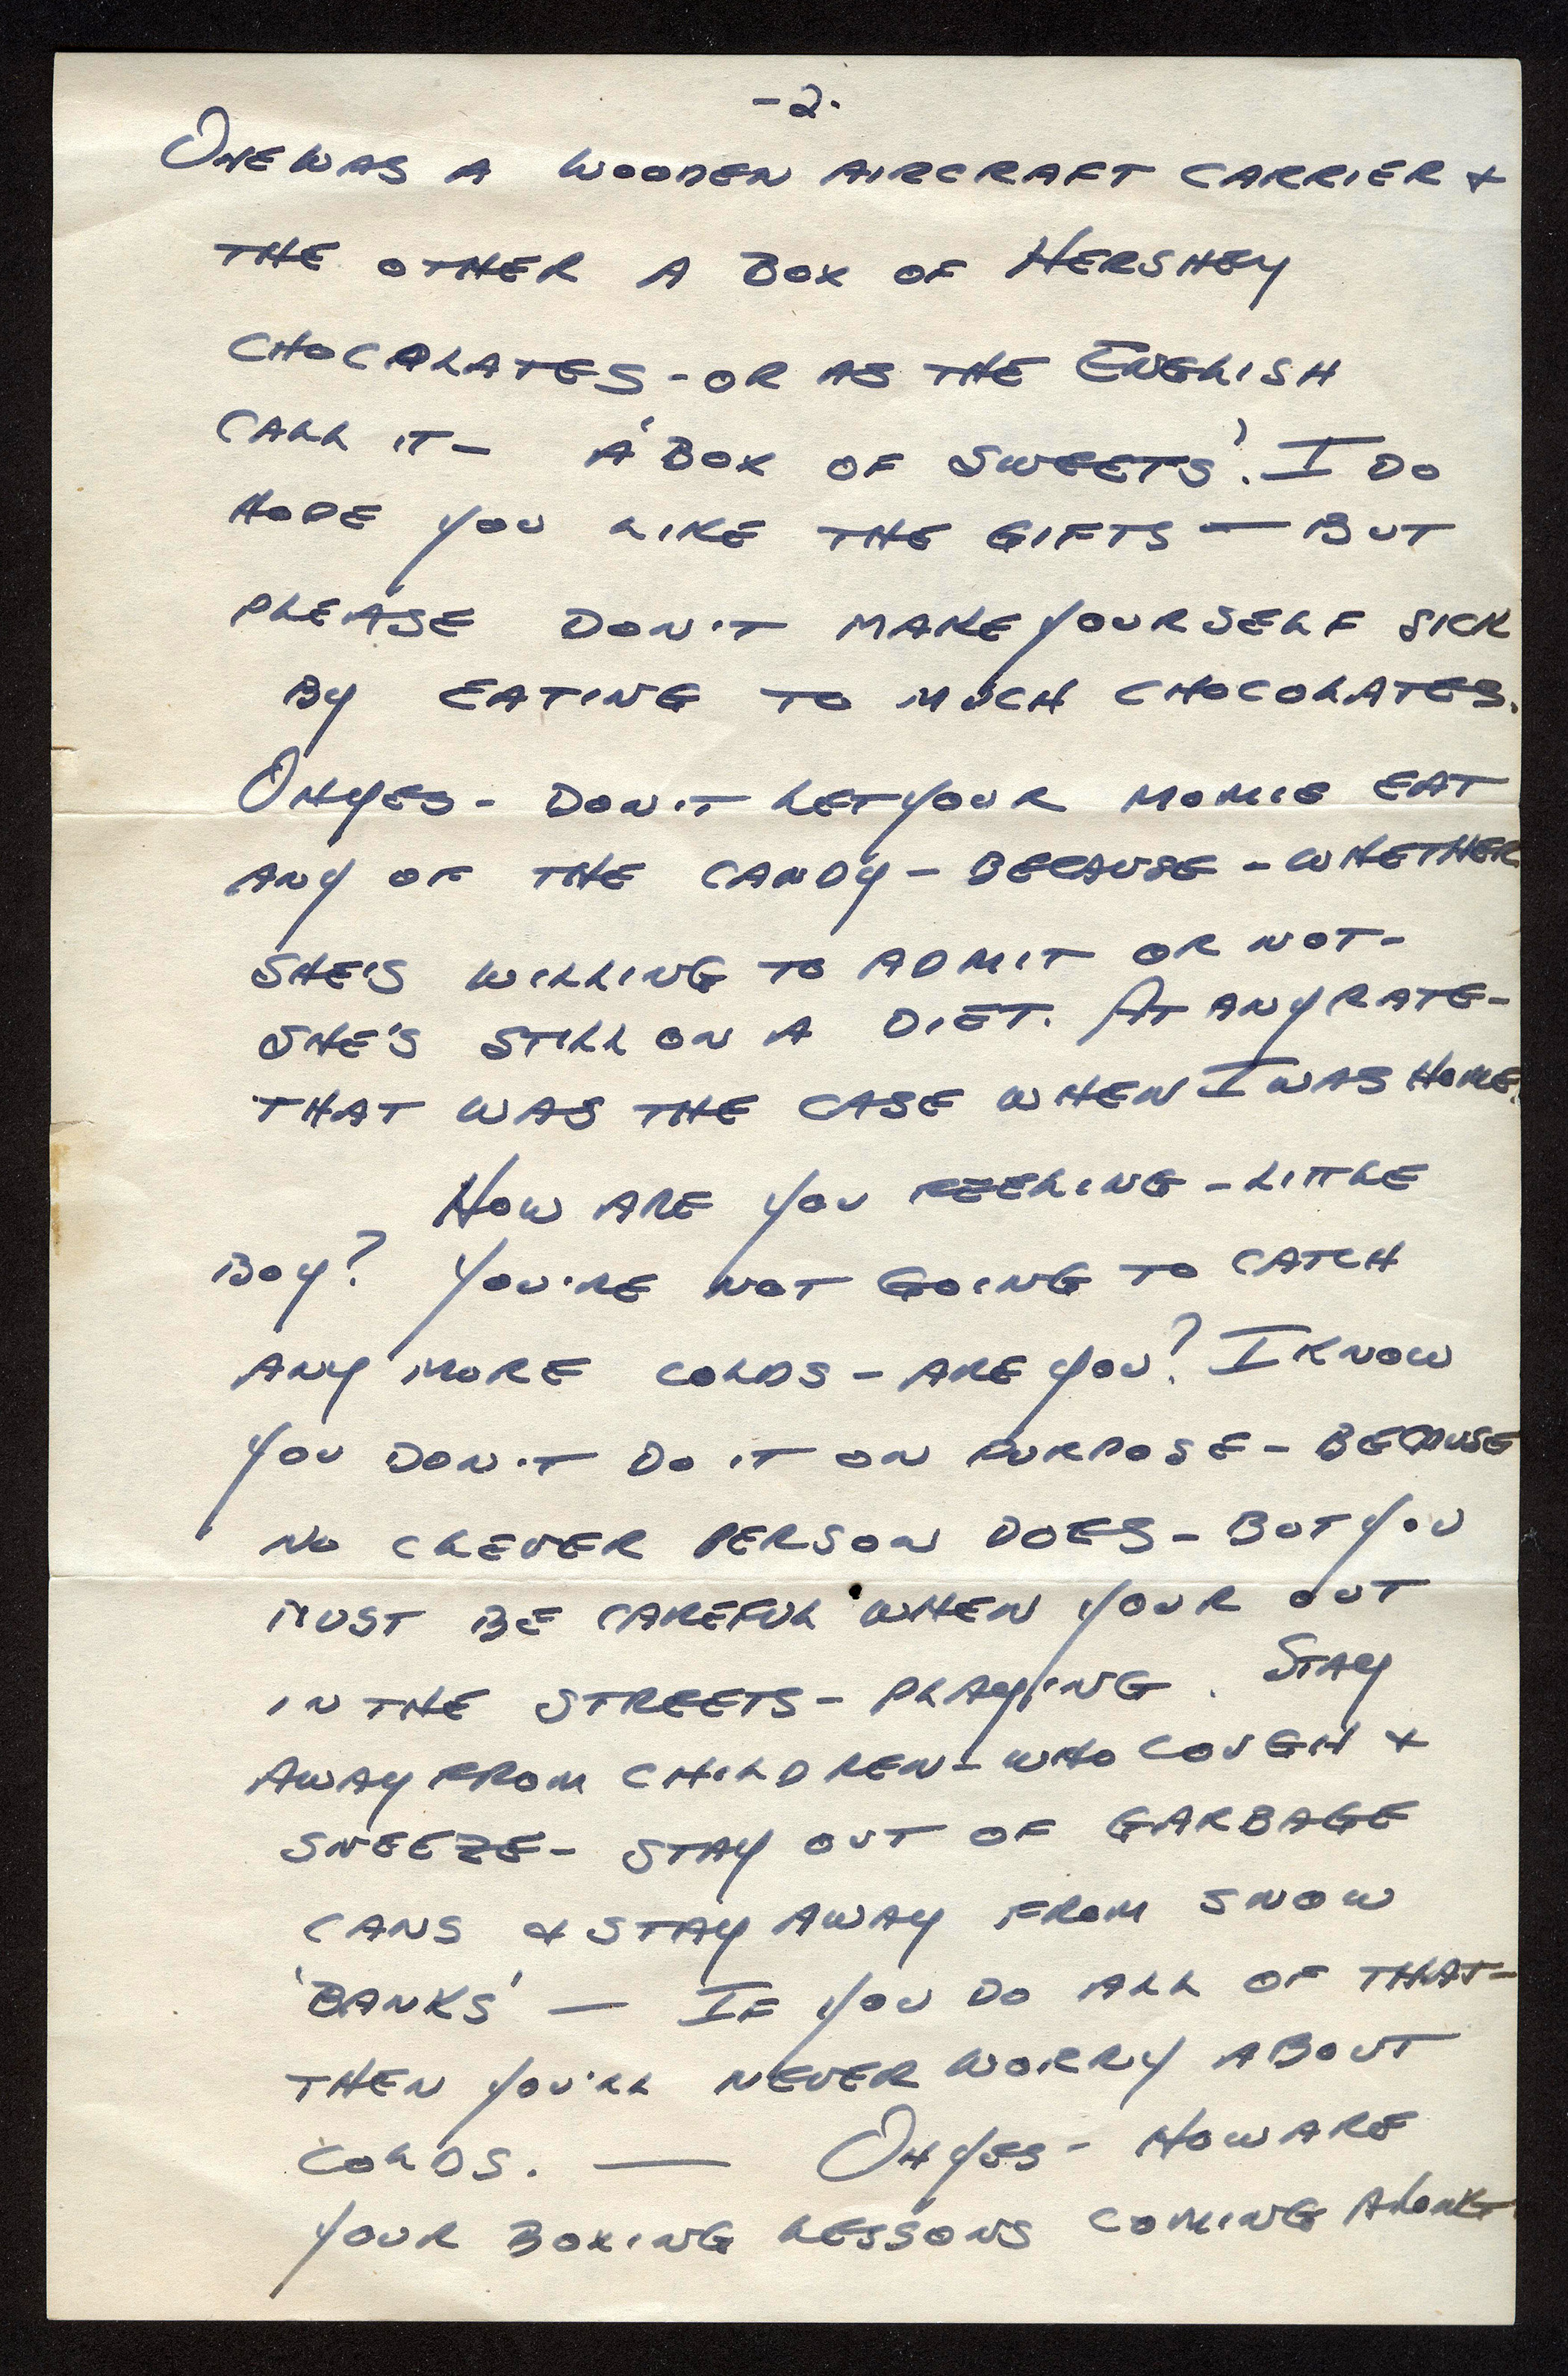 -2.
ONE WAS A WOODEN AIRCRAFT CARRIER &
THE OTHER A BOX OF HERSHEY
CHOCALATES - OR AS THE ENGLISH
CALL IT - A 'BOX OF SWEETS'. I DO
HOPE YOU LIKE THE GIFTS — BUT
PLEASE DON'T MAKE YOURSELF SICK
BY EATING TO MUCH CHOCOLATES.
OH YES - DON'T LET YOUR MOMIE EAT
ANY OF THE CANDY - BECAUSE - WHETHER
SHE'S WILLING TO ADMIT OR NOT -
SHE'S STILL ON A DIET. AT ANY RATE -
THAT WAS THE CASE WHEN I WAS HOME.
HOW ARE YOU FEELING - LITTLE
BOY? YOU'RE NOT GOING TO CATCH
ANY MORE COLDS - ARE YOU? I KNOW
YOU DON'T DO IT ON PURPOSE - BECAUSE
NO CLEVER PERSON DOES - BUT YOU
MUST BE CAREFUL WHEN YOUR OUT
IN THE STREETS - PLAYING. STAY
AWAY FROM CHILDREN - WHO COUGH &
SNEEZE - STAY OUT OF GARBAGE
CANS & STAY AWAY FROM SNOW
'BANKS' — IF YOU DO ALL OF THAT -
THEN YOU'LL NEVER WORRY ABOUT
COLDS. — OH YES - HOW ARE
YOUR BOXING LESSONS COMING ALONG